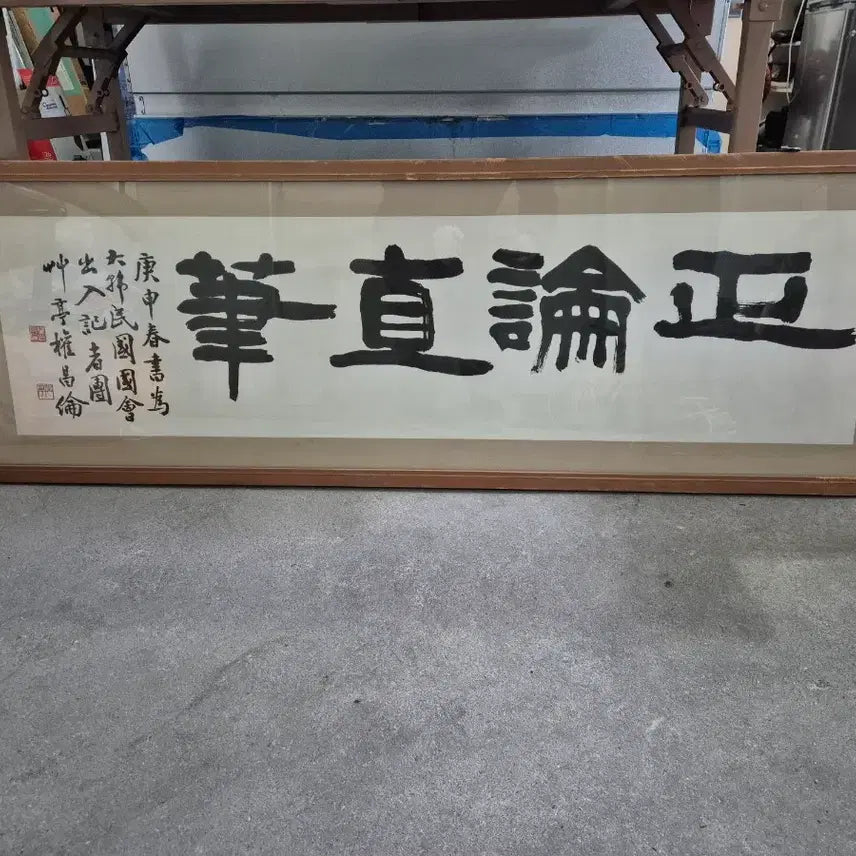 正論直筆
庚申春書為
大韓民國國會
出入記者團
艸亭權昌倫